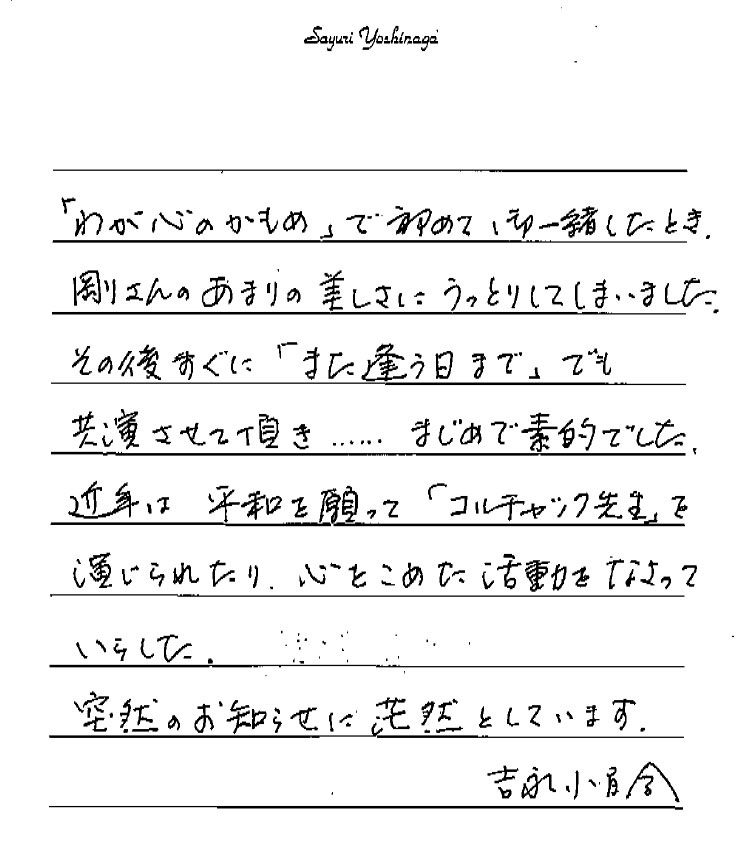 Sayuri Yoshinaga
「わが心のかもめ」で初めて御一緒したとき、
剛さんのあまりの美しさにうっとりしてしまいました。
その後すぐに「また逢う日まで」でも
共演させて頂き……まじめで素的でした。
近年は平和を願って「コルチャック先生」を
演じられたり、心をこめた活動をなさって
いらした。
突然のお知らせに茫然としています。
吉永小百合